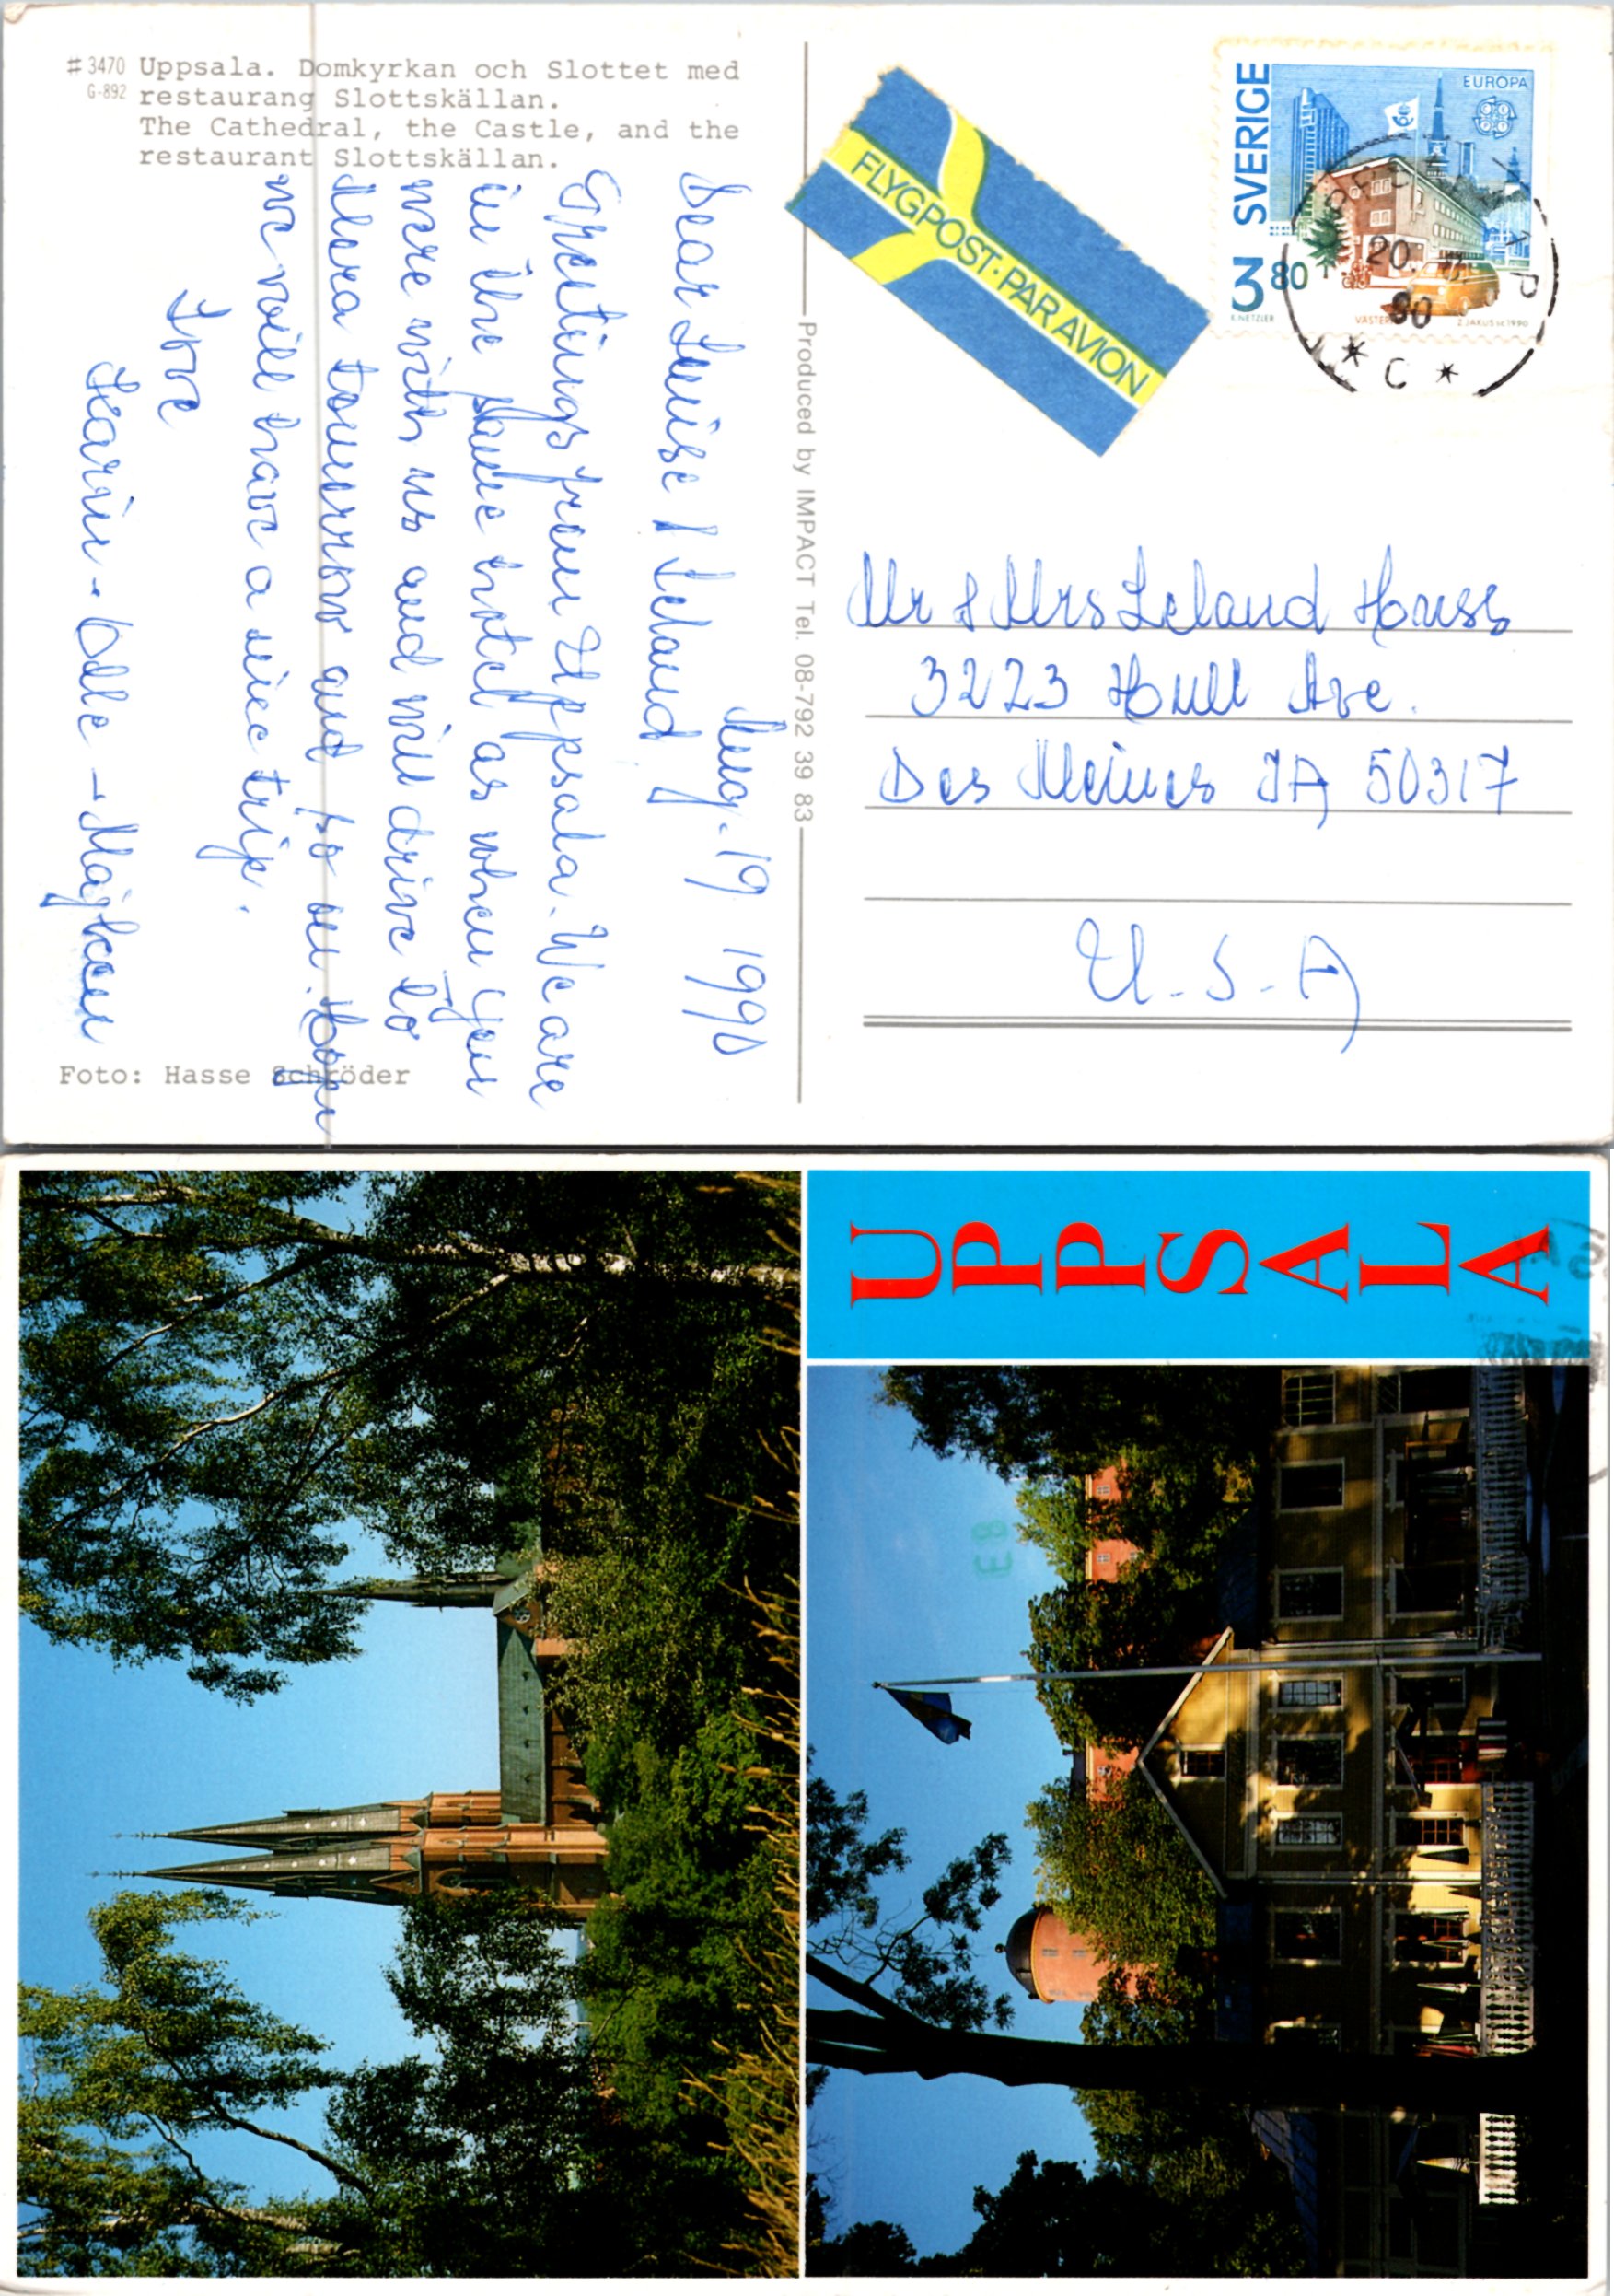 # 3470 Uppsala. Domkyrkan och Slottet med
G-892 restaurang Slottskällan.
The Cathedral, the Castle, and the
restaurant Slottskällan.
Aug. 19 1990
Dear Louise & Leland,
Greetings from Uppsala. We are
in the same hotel as when you
were with us and will drive to
Mora tomorrow and so on. Hope
we will have a nice trip.
Love
Karin - Olle - Majken
Foto: Hasse Schröder
Produced by IMPACT Tel. 08-792 39 83
FLYGPOST·PAR AVION
SVERIGE
EUROPA
3 80
K. NETZLER
Z. JAKUS sc 1990
20. 8.
90
* C *
Mr & Mrs Leland House
3223 Hull Ave.
Des Moines IA 50317
U.S.A
UPPSALA